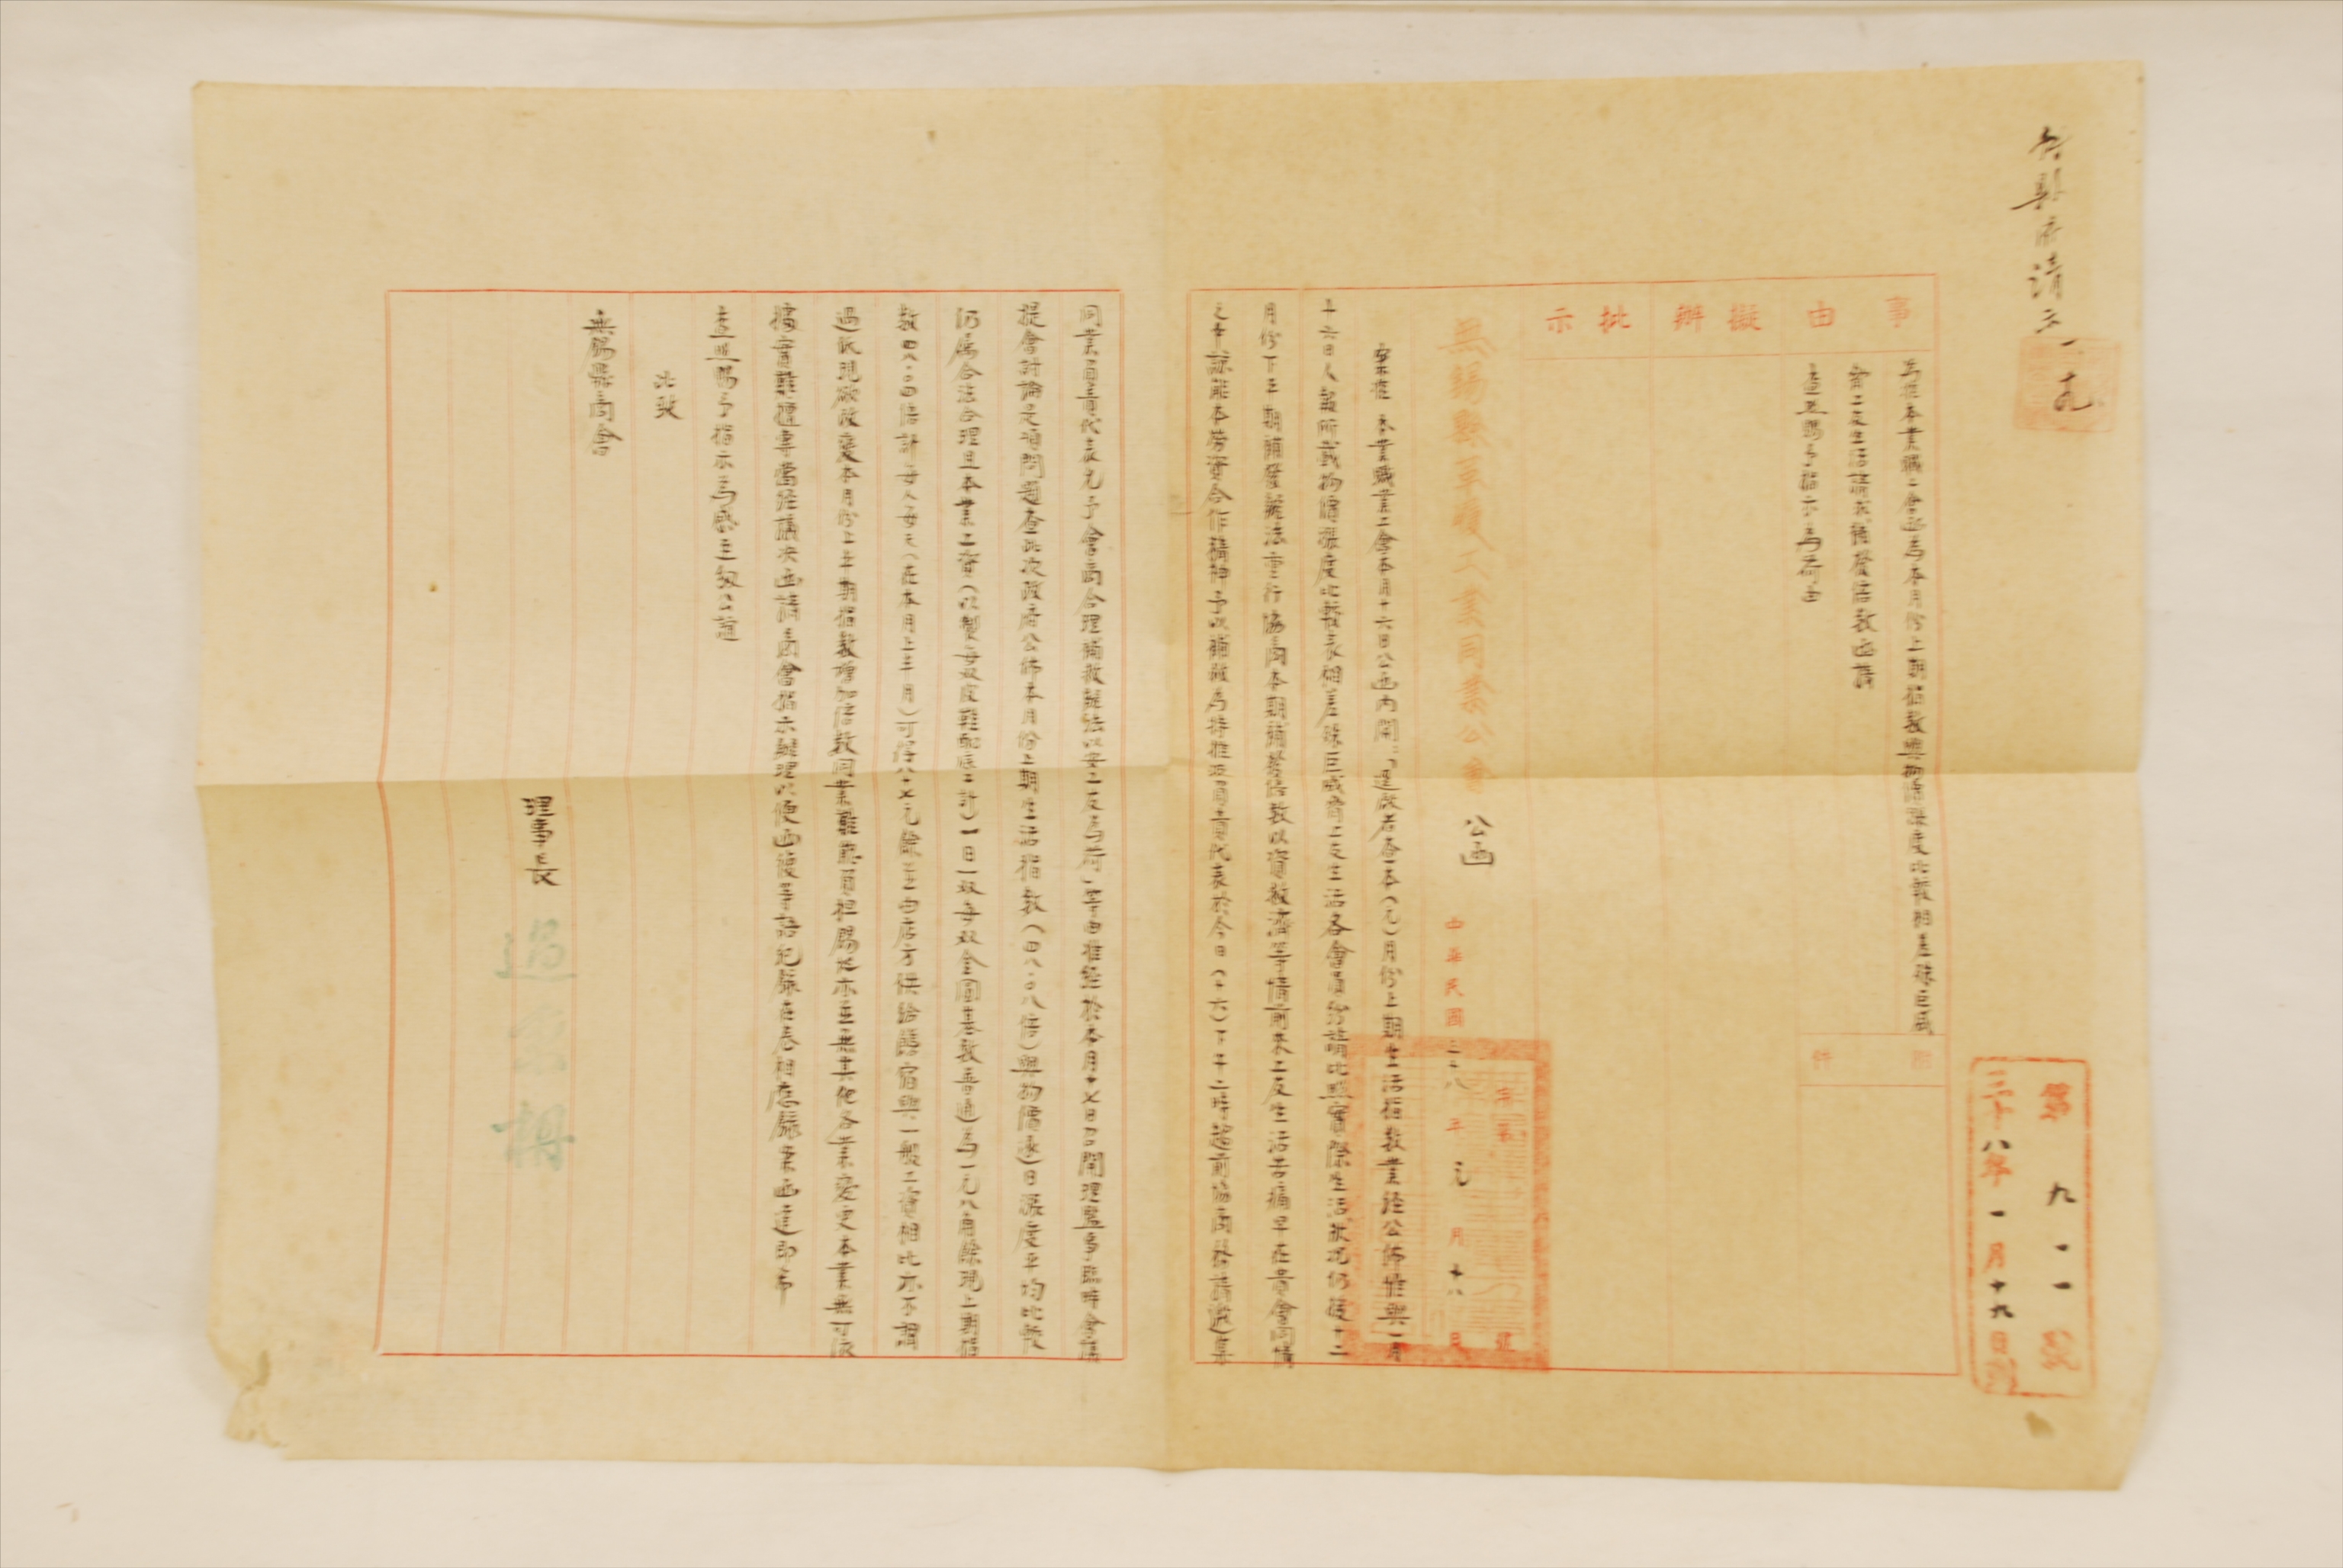 事由
擬辦
批示
為准本業職工會函為本月份上期指數與物價漲度比較相差殊巨威
脅工友生活請求補發倍數函請
查照賜予指示為荷由
附件
第九一一號
三十八年一月十九日到
無錫縣革履工業同業公會 公函
中華民國三十八年元月十八日
案准 本業職業工會本月十六日公函內開：「逕啟者查本(元)月份上期生活指數業經公佈惟與一月
十六日人報所載物價漲度比較表相差殊巨威脅工友生活各會員紛請比照實際生活狀况仍援十二
月份下三期補發辦法重行協商本期補發倍數以資救濟等情前來工友生活苦痛早在貴會同情
之中諒能本勞資合作精神予以補救為特推派負責代表於今日(十六)下午二時趨前協商務請邀集
同業負責代表允予會商合理補救辦法以安工友為荷」等由准經於本月十七日召開理監事臨時會議
提會討論是項問題查此次政府公佈本月份上期生活指數(四八·〇八倍)與物價逐日漲度平均比較
仍屬合法合理且本業工資(以製每双皮鞋配底工計)一日一双每双金圓基數普通為一元八角餘現上期指
數四八·〇四倍計每人每天(在本月上三月)可得八十七元餘並由店方供給膳宿與一般工資相比亦不謂
過低現欲改變本月份上半期指數增加倍數同業難無負担賜此亦並無其他各業變更本業無可依
據實難擅專當經議決函請商會指示辦理以便函復等語紀錄在卷相應錄案函達即希
查照賜予指示為感三級公誼
此致
無錫縣商會
理事長